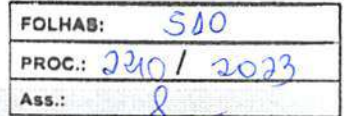 FOLHAS: 510
PROC.: 2210 / 2023
Ass.: